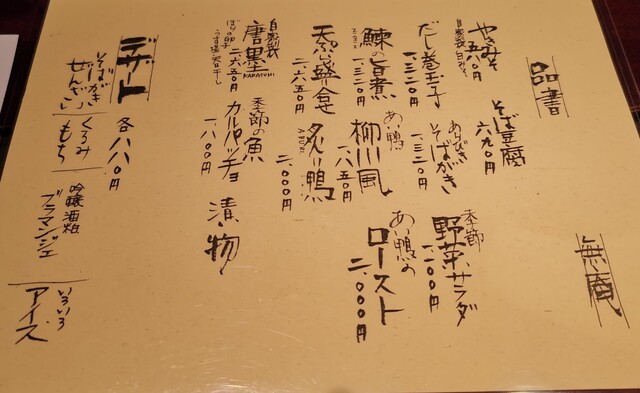 無庵
品書
やきみそ
自家製白みそ 五八〇円
そば豆腐
六九〇円
季節
野菜サラダ
一、二〇〇円
だし巻玉子
一、三二〇円
あらびき
そばがき
一、三二〇円
鰊の旨煮
一、三二〇円
あい鴨
柳川風
一、八五〇円
あい鴨の
ロースト
二、〇〇〇円
天ぷら盛合せ
二、六五〇円
炙り鴨
ABURI
二、〇〇〇円
自家製
唐墨
KARASUMI
二、六五〇円
ぼらの卵
うす塩天日干し
季節の魚
カルパッチョ
一、八〇〇円
漬物
デザート
各八八〇円
そばがき
ぜんざい
くるみ
もち
吟醸酒粕
ブラマンジェ
いろいろ
アイス